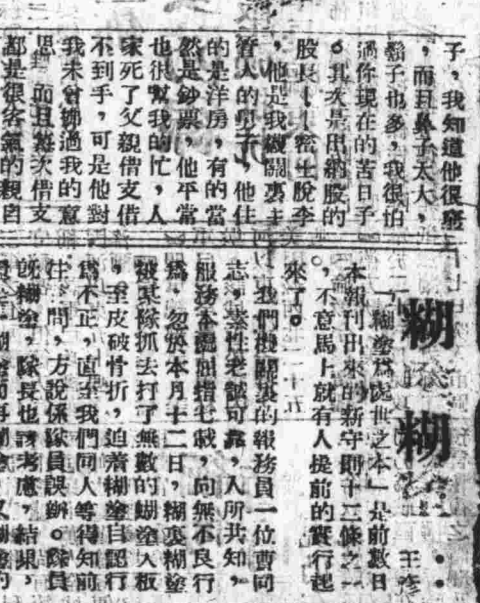 子，我知道他很窮
，而且鼻子太大，
鬍子也多，我很怕
過你現在的苦日子
。其次是出納股的
股長——密士脫李
，他是我機關裏主
管人的舅子，他住
的是洋房，有的當
然是鈔票，他平常
也很幫我的忙，人
家死了父親借支借
不到手，可是他對
我未曾拂過我的意
思，而且每次借支
都是很客氣的親自
糊糊
王
「糊塗爲處世之本」是前數日
本報刊出來的新守則十二條之一
，不意馬上就有人提前的實行起
來了。
我們機關裏的報務員一位曹同
志，素性老誠可靠，人所共知，
服務本 屈指七載，向無不良行
爲，忽於本月十二日，糊裏糊塗
被某隊抓去打了無數的糊塗大板
，至皮破骨折，迫着糊塗自認行
爲不正，直至我們同人等得知前
往 問，方說係隊員誤辦。隊員
既糊塗，隊長也該考慮，結果，